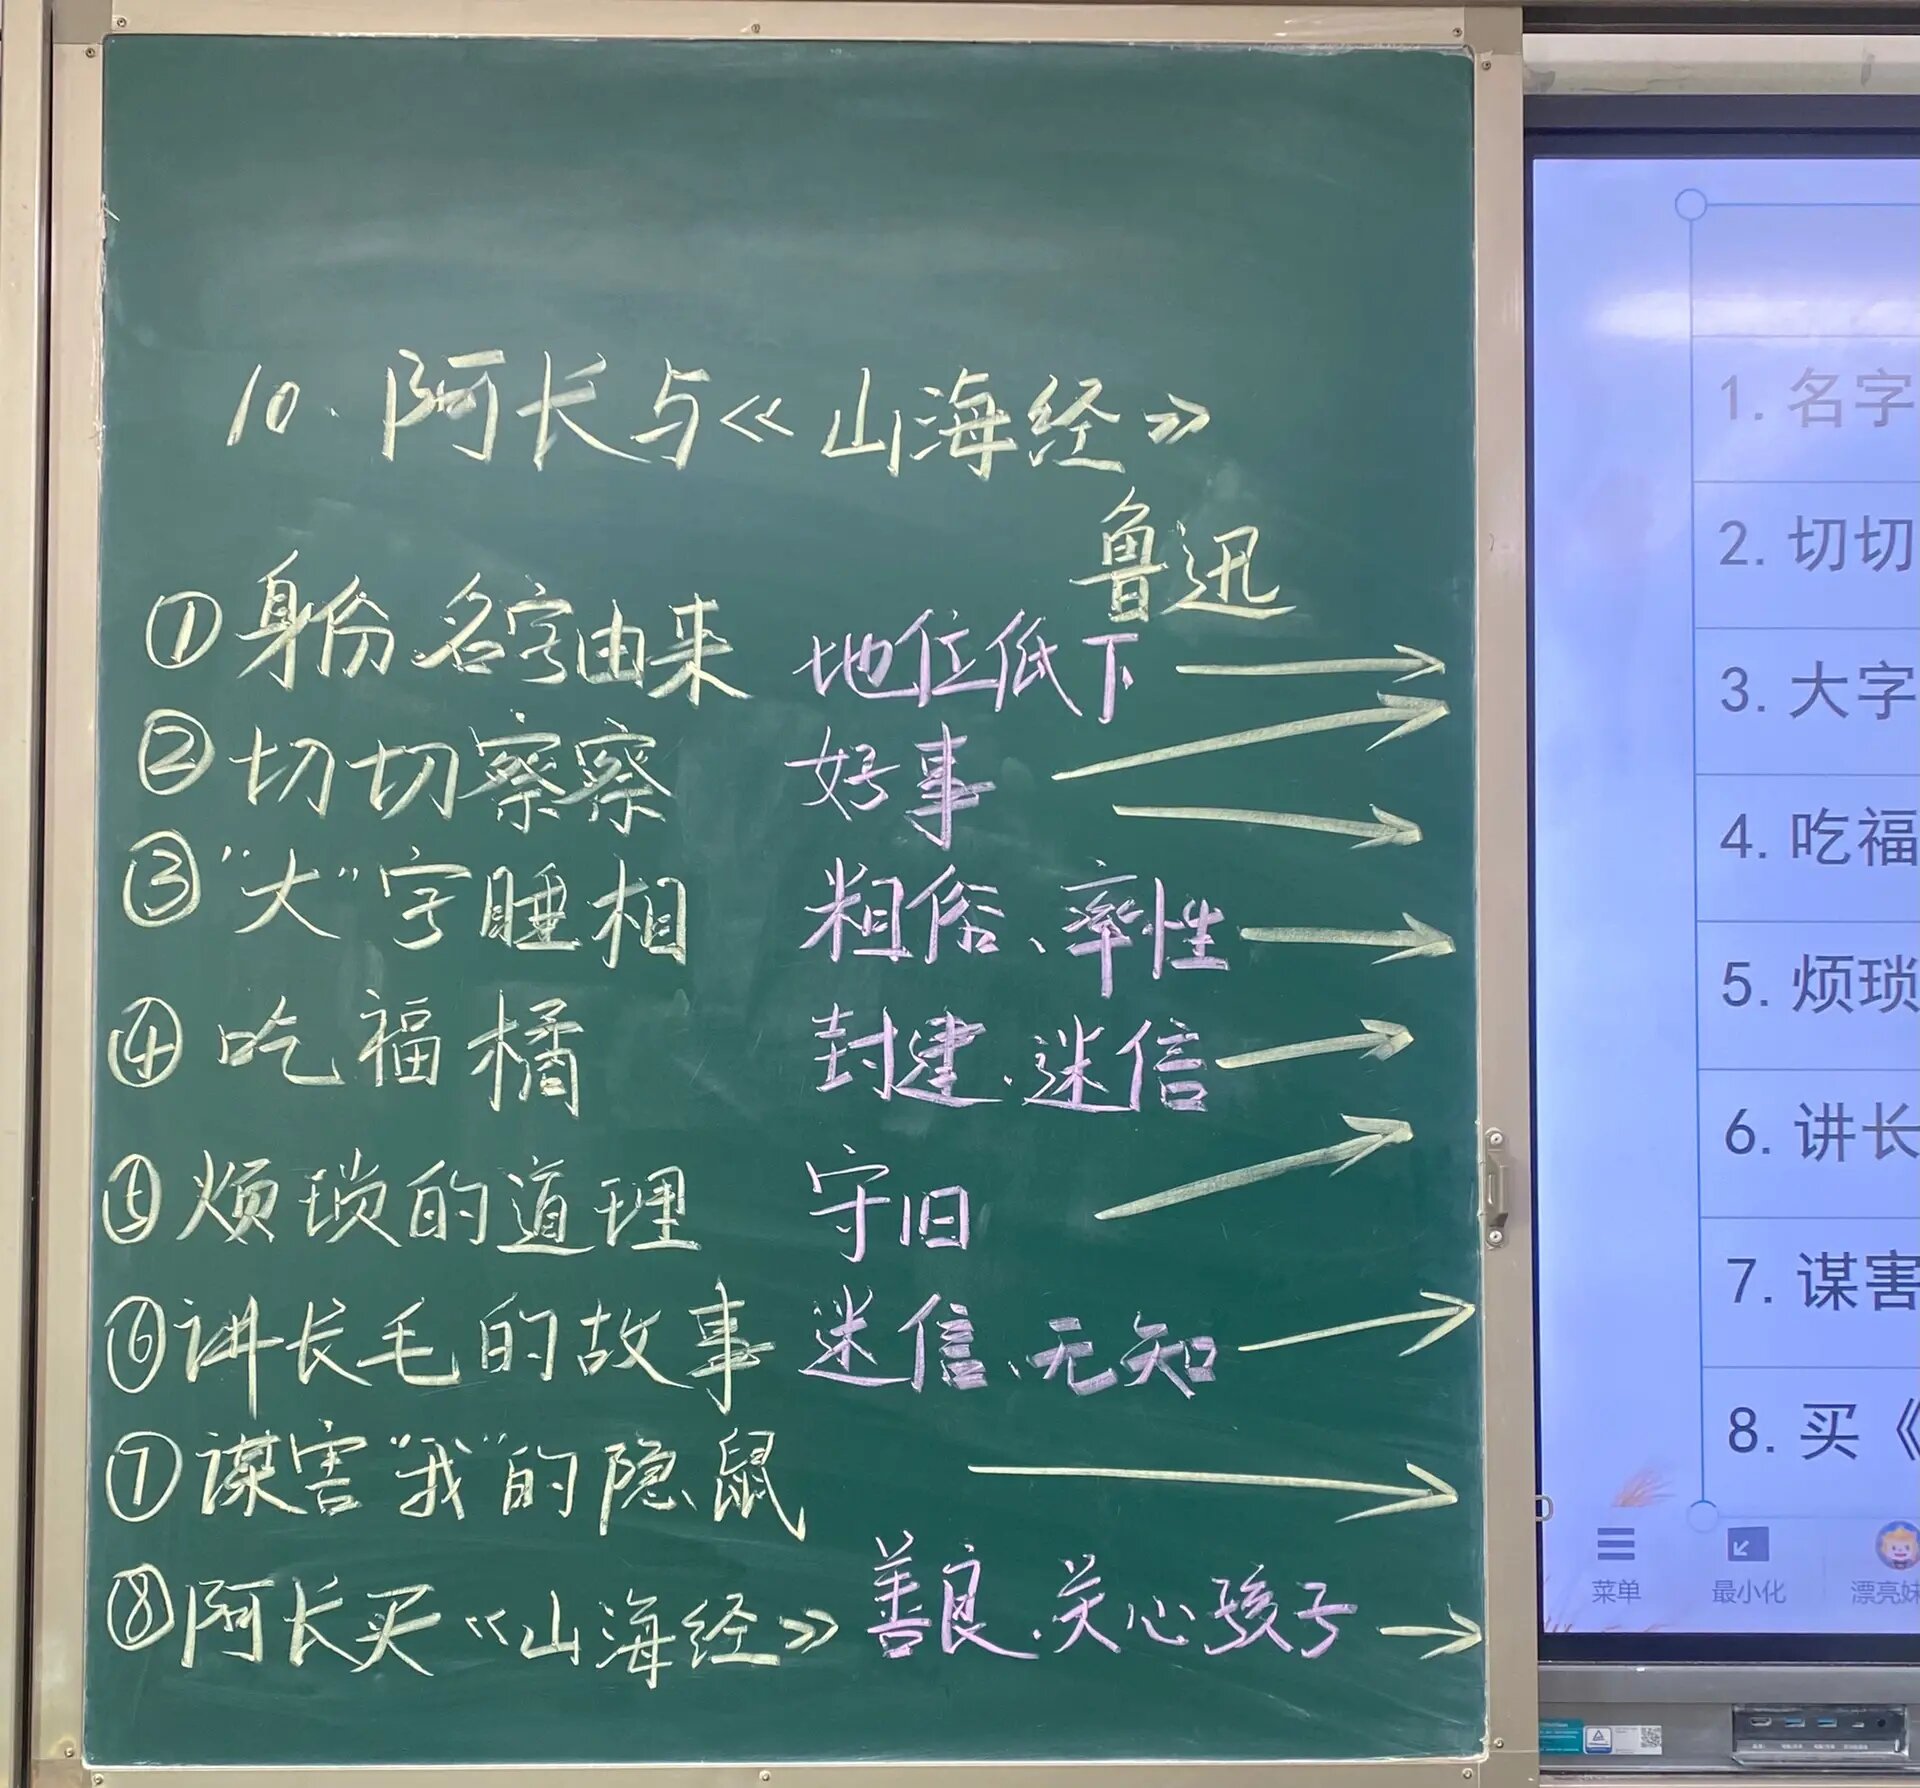 10.阿长与《山海经》
鲁迅
①身份、名字由来 地位低下 →
②切切察察 好事 →
→
③“大”字睡相 粗俗、率性 →
④吃福橘 封建、迷信 →
⑤烦琐的道理 守旧 →
⑥讲长毛的故事 迷信、无知 →
⑦谋害“我”的隐鼠 →
⑧阿长买《山海经》 善良、关心孩子 →
1.名字
2.切切
3.大字
4.吃福
5.烦琐
6.讲长
7.谋害
8.买《
菜单 最小化 漂亮妹